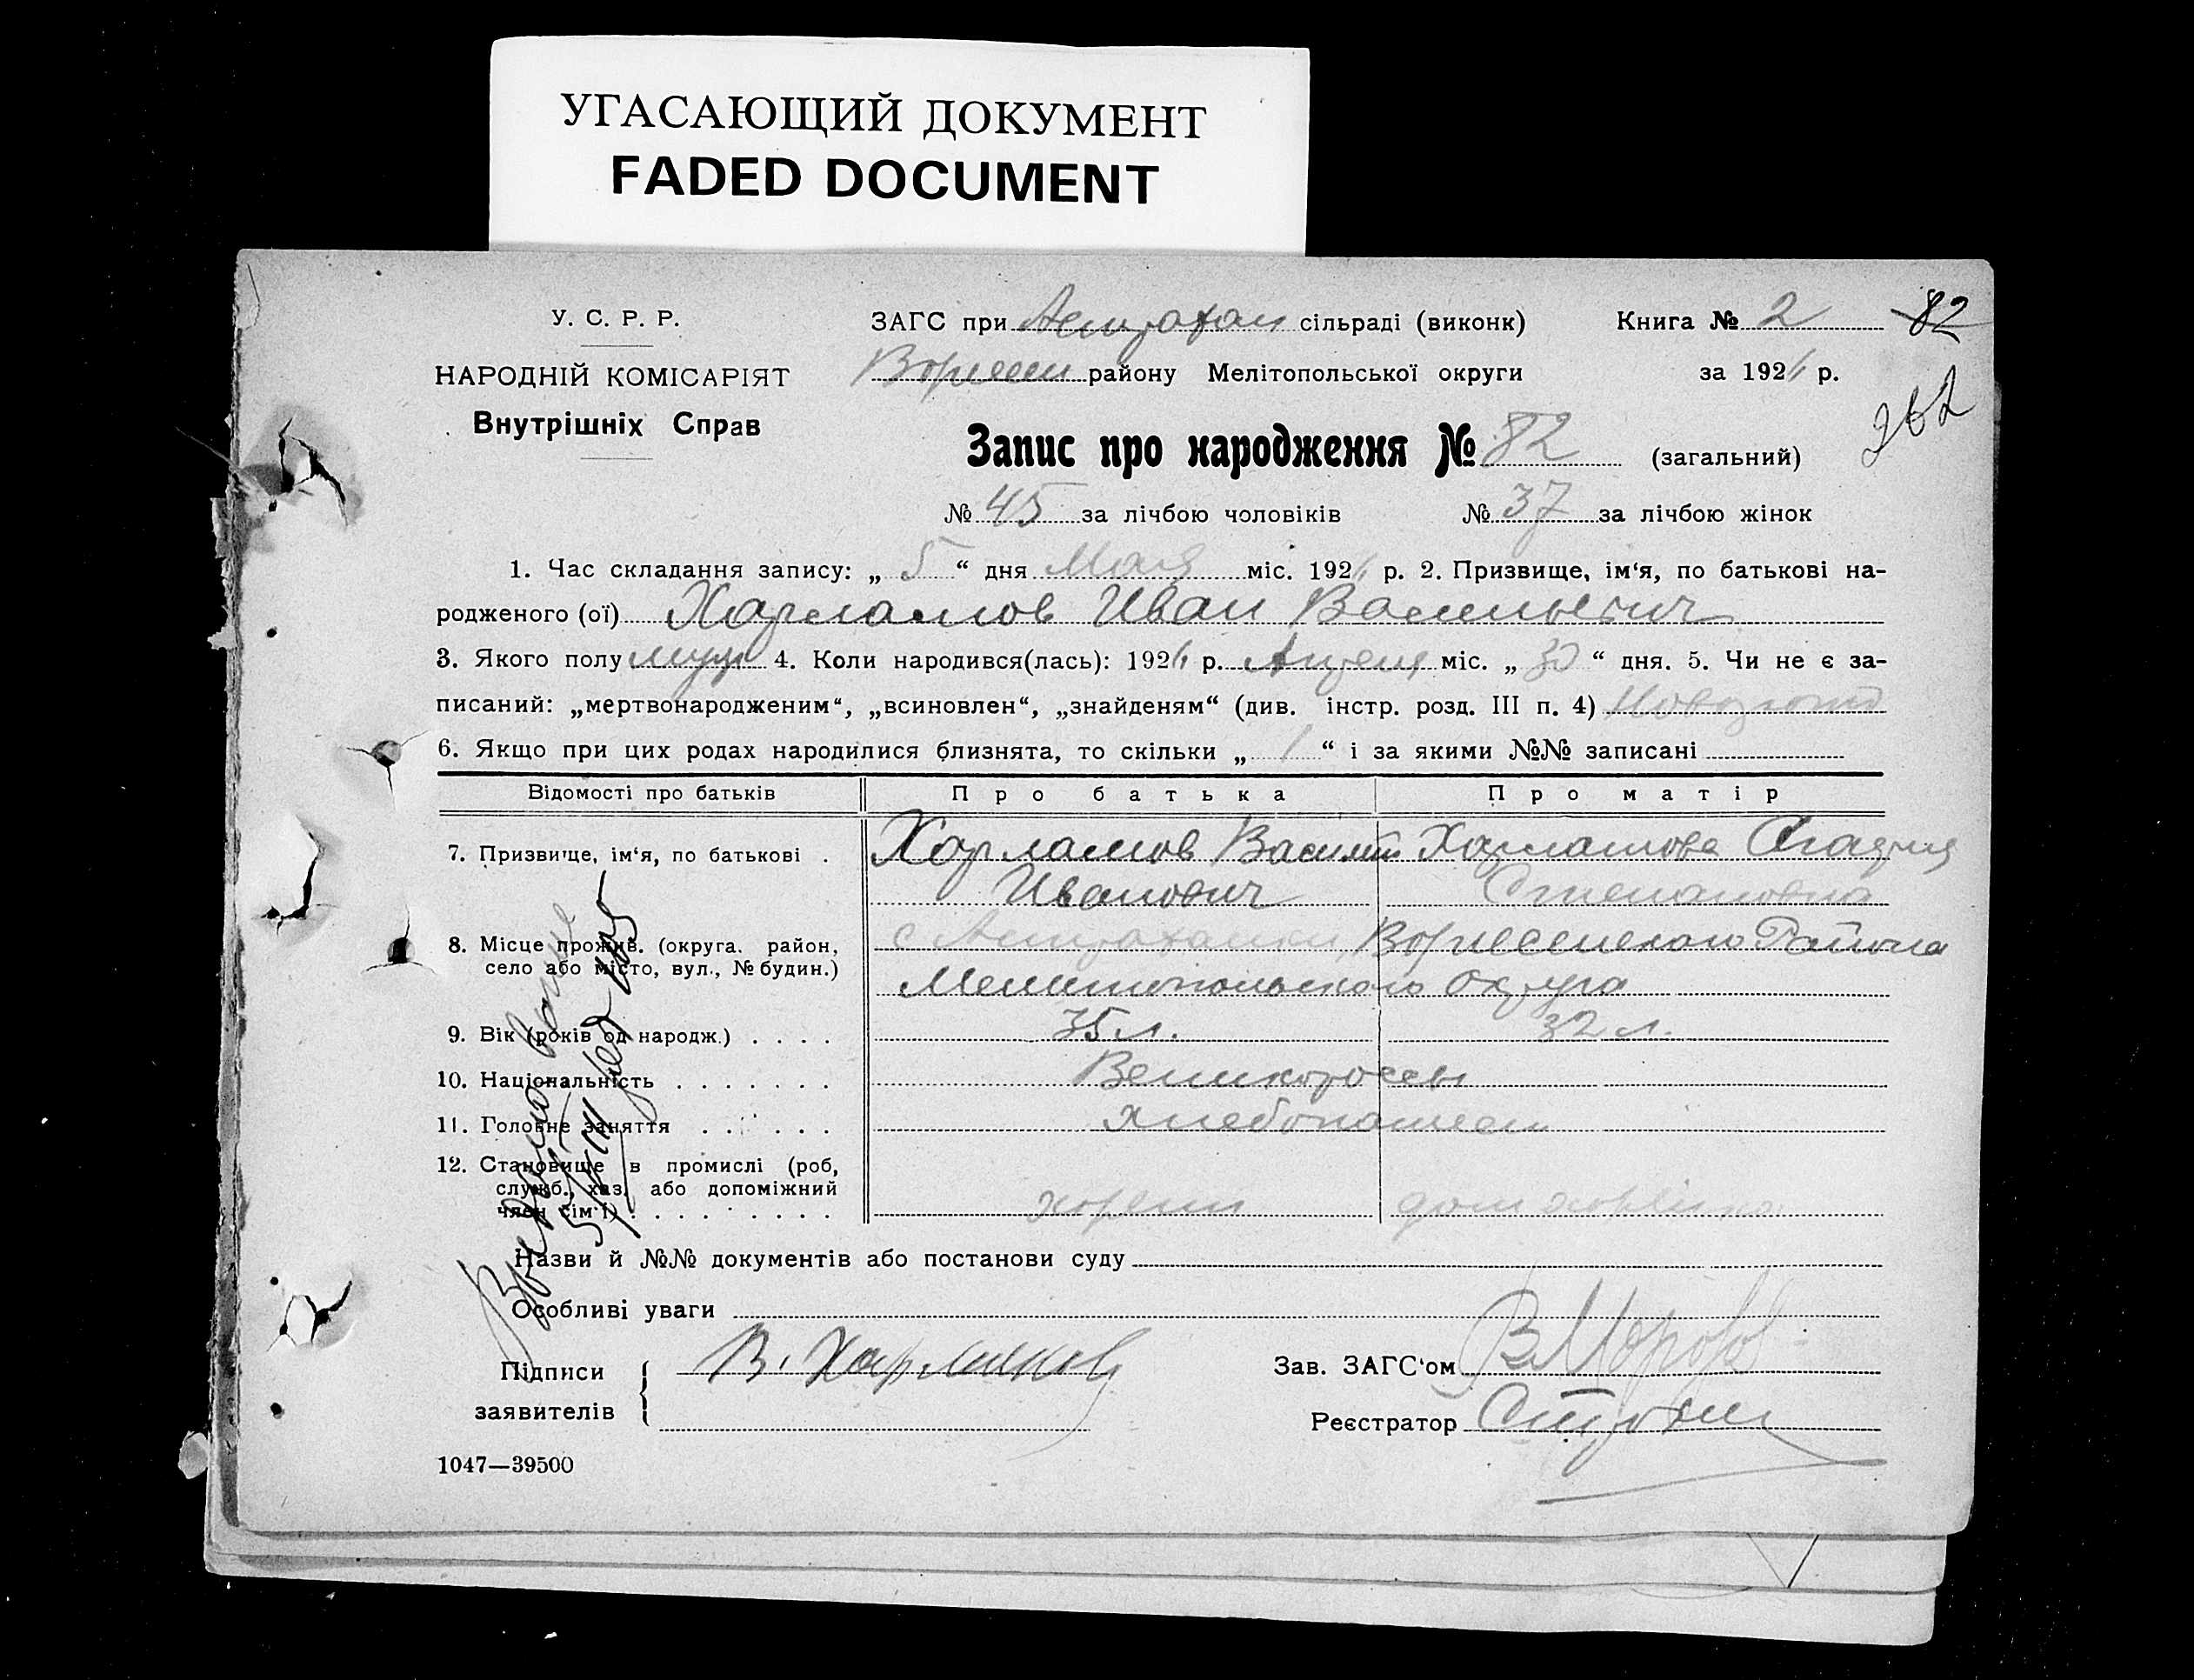 УГАСАЮЩИЙ ДОКУМЕНТ
FADED DOCUMENT
У. С. Р. Р.
НАРОДНІЙ КОМІСАРІЯТ
Внутрішніх Справ
ЗАГС при Астрахан сільраді (виконк)
району Мелітопольської округи
Книга № 2 82
за 192 р.
262
Запис про народження № 82 (загальний)
№ 45 за лічбою чоловіків № 37 за лічбою жінок
1. Час складання запису: „ 5 “ дня Мая міс. 192 р. 2. Призвище, ім‘я, по батькові на-
родженого (ої) Харламов Иван Васильевич
3. Якого полу муж 4. Коли народився(лась): 192 р. Апреля міс. „ 30 “ дня. 5. Чи не є за-
писаний: „мертвонародженим“, „всиновлен“, „знайденям“ (див. інстр. розд. III п. 4)
6. Якщо при цих родах народилися близнята, то скільки „ 1 “ і за якими №№ записані
Відомості про батьків Про батька Про матір
7. Призвище, ім‘я, по батькові . Харламов Василий Харламова
Иванович Степановна
8. Місце прожив. (округа. район, с Астраханка, Вознесенского Района
село або місто, вул., № будин.) Мелитопольского округа
9. Вік (років од народж.) . . . . 35 л. 32 л.
10. Національність . . . . . . . Великороссы
11. Головне заняття . . . . . . хлебопашест
12. Становище в промислі (роб,
служб., хаз. або допоміжний
член сім‘ї) . . . . . . . . . хозяин дом хозяйка
Назви й №№ документів або постанови суду
Особливі уваги
Підписи
заявителів
В. Харламов
Зав. ЗАГС‘ом
Реєстратор
1047—39500